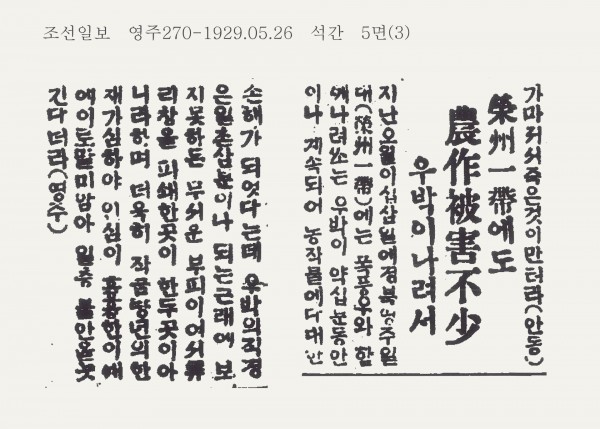 조선일보 영주270-1929.05.26 석간 5면(3)
가마귀서죽은것이만터라(안동)
榮州一帶에도
農作被害不少
우박이나려서
지난으월이십삼일에경북영주일
대(榮州一帶)에는 폭풍우와 함
께나려쏘는 우박이 약십분동안
이나 계속되어 농작물에다대한
손해가 되엿다는데 우박의직경
은일촌삼분이나 되는근래에 보
지못하든 무서운 부피이여서
리창을 파쇄한곳이 한두곳이아
니라하며 더욱히 작금량년의한
재가심하야 인심이 흉흉한이때
에이도밋미암아 일층 불안을늣
긴다더라(영주)